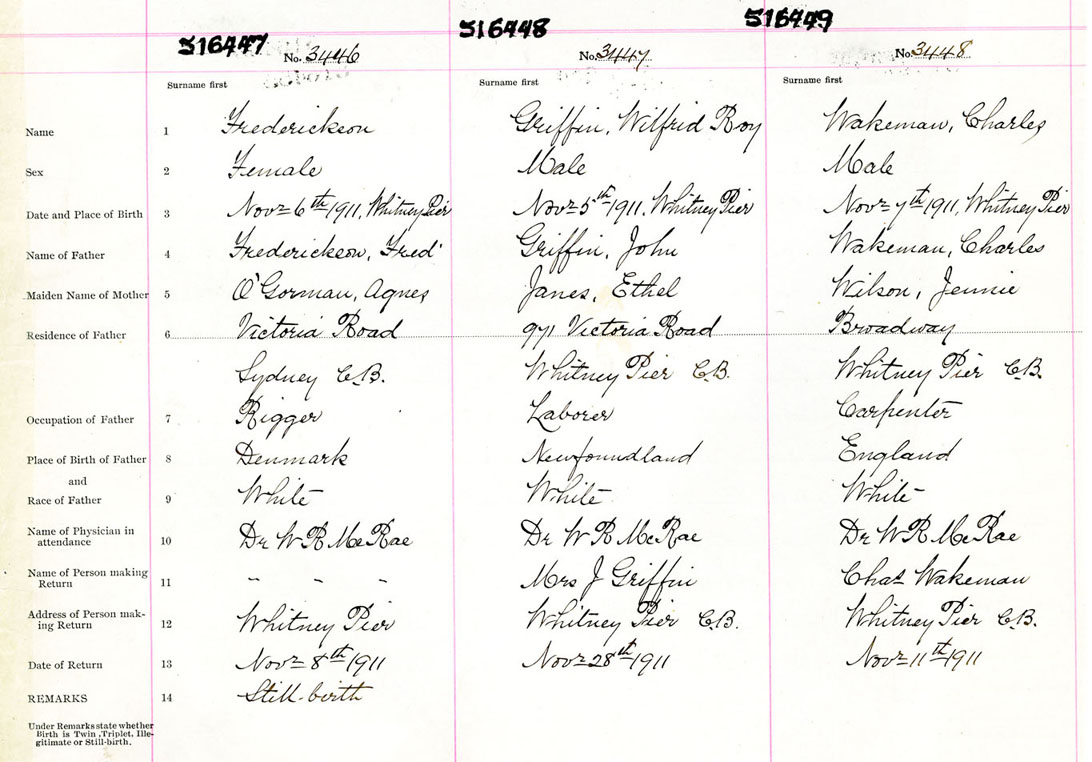 516447 516448 516449
No. 3446 No. 3447 No. 3448
Surname first Surname first Surname first
Name 1 Frederickson Griffin, Wilfrid Roy Wakeman, Charles
Sex 2 Female Male Male
Date and Place of Birth 3 Novr 6th 1911, Whitney Pier Novr 5th 1911, Whitney Pier Novr 7th 1911, Whitney Pier
Name of Father 4 Frederickson, Fred' Griffin, John Wakeman, Charles
Maiden Name of Mother 5 O'Gorman, Agnes Janes, Ethel Wilson, Jennie
Residence of Father 6 Victoria Road 971 Victoria Road Broadway
Sydney C.B. Whitney Pier C.B. Whitney Pier C.B.
Occupation of Father 7 Rigger Laborer Carpenter
Place of Birth of Father 8 Denmark Newfoundland England
and
Race of Father 9 White White White
Name of Physician in
attendance 10 Dr W R McRae Dr W R McRae Dr W R McRae
Name of Person making
Return 11 - - - Mrs J Griffin Chas Wakeman
Address of Person mak-
ing Return 12 Whitney Pier Whitney Pier C.B. Whitney Pier C.B.
Date of Return 13 Novr 8th 1911 Novr 28th 1911 Novr 11th 1911
REMARKS 14 Still-birth
Under Remarks state whether
Birth is Twin, Triplet, Ille-
gitimate or Still-birth.